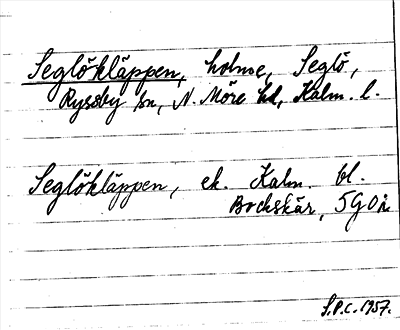 Seglökläppen, holme, Seglö,
Ryssby sn, N. Möre hd, Kalm. l.
Seglökläppen, ek. Kalm. bl.
Bockskär, 5G0
S.P.C. 1957.